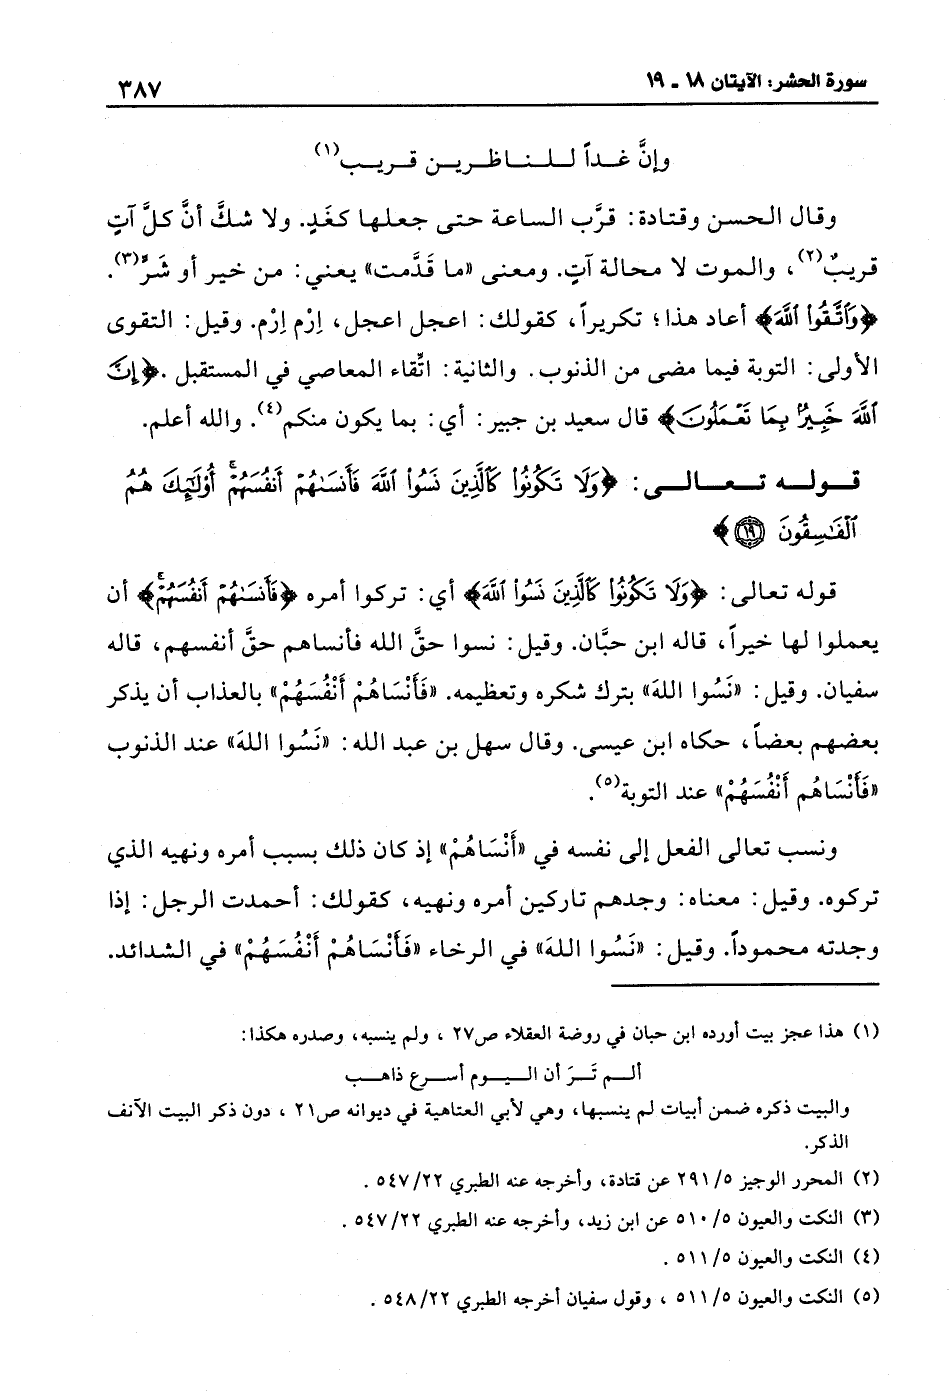 سورة الحشر: الآيتان ١٨ - ١٩
٣٨٧
وإنَّ غـداً لـلـنـاظـريـن قـريـب(١)
وقال الحسن وقتادة: قرَّب الساعة حتى جعلها كغَدٍ. ولا شكَّ أنَّ كلَّ آتٍ
قريبٌ(٢)، والموت لا محالة آتٍ. ومعنى «ما قَدَّمت» يعني: من خير أو شَرٍّ(٣).
﴿وَٱتَّقُوا۟ ٱللَّهَ﴾ أعاد هذا؛ تكريراً، كقولك: اعجل اعجل، اِرْم اِرْم. وقيل: التقوى
الأولى: التوبة فيما مضى من الذنوب. والثانية: اتِّقاء المعاصي في المستقبل. ﴿إِنَّ
ٱللَّهَ خَبِيرٌۢ بِمَا تَعْمَلُونَ﴾ قال سعيد بن جبير: أي: بما يكون منكم(٤). والله أعلم.
قـولـه تـعـالـى: ﴿وَلَا تَكُونُوا۟ كَٱلَّذِينَ نَسُوا۟ ٱللَّهَ فَأَنسَىٰهُمْ أَنفُسَهُمْ ۚ أُو۟لَٰٓئِكَ هُمُ
ٱلْفَٰسِقُونَ ١٩﴾
قوله تعالى: ﴿وَلَا تَكُونُوا۟ كَٱلَّذِينَ نَسُوا۟ ٱللَّهَ﴾ أي: تركوا أمره ﴿فَأَنسَىٰهُمْ أَنفُسَهُمْ ۚ﴾ أن
يعملوا لها خيراً، قاله ابن حبَّان. وقيل: نسوا حقَّ الله فأنساهم حقَّ أنفسهم، قاله
سفيان. وقيل: «نَسُوا اللهَ» بترك شكره وتعظيمه. «فَأَنْسَاهُمْ أَنْفُسَهُمْ» بالعذاب أن يذكر
بعضهم بعضاً، حكاه ابن عيسى. وقال سهل بن عبد الله: «نَسُوا اللهَ» عند الذنوب
«فَأَنْسَاهُم أَنْفُسَهُمْ» عند التوبة(٥).
ونسب تعالى الفعل إلى نفسه في «أَنْسَاهُمْ» إذ كان ذلك بسبب أمره ونهيه الذي
تركوه. وقيل: معناه: وجدهم تاركين أمره ونهيه، كقولك: أحمدت الرجل: إذا
وجدته محموداً. وقيل: «نَسُوا اللهَ» في الرخاء «فَأَنْسَاهُمْ أَنْفُسَهُمْ» في الشدائد.
(١) هذا عجز بيت أورده ابن حبان في روضة العقلاء ص٢٧ ، ولم ينسبه، وصدره هكذا:
ألــم تَــرَ أن الـيــوم أسـرع ذاهــب
والبيت ذكره ضمن أبيات لم ينسبها، وهي لأبي العتاهية في ديوانه ص٢١ ، دون ذكر البيت الآنف
الذكر.
(٢) المحرر الوجيز ٢٩١/٥ عن قتادة، وأخرجه عنه الطبري ٥٤٧/٢٢ .
(٣) النكت والعيون ٥١٠/٥ عن ابن زيد، وأخرجه عنه الطبري ٥٤٧/٢٢ .
(٤) النكت والعيون ٥١١/٥ .
(٥) النكت والعيون ٥١١/٥ ، وقول سفيان أخرجه الطبري ٥٤٨/٢٢ .